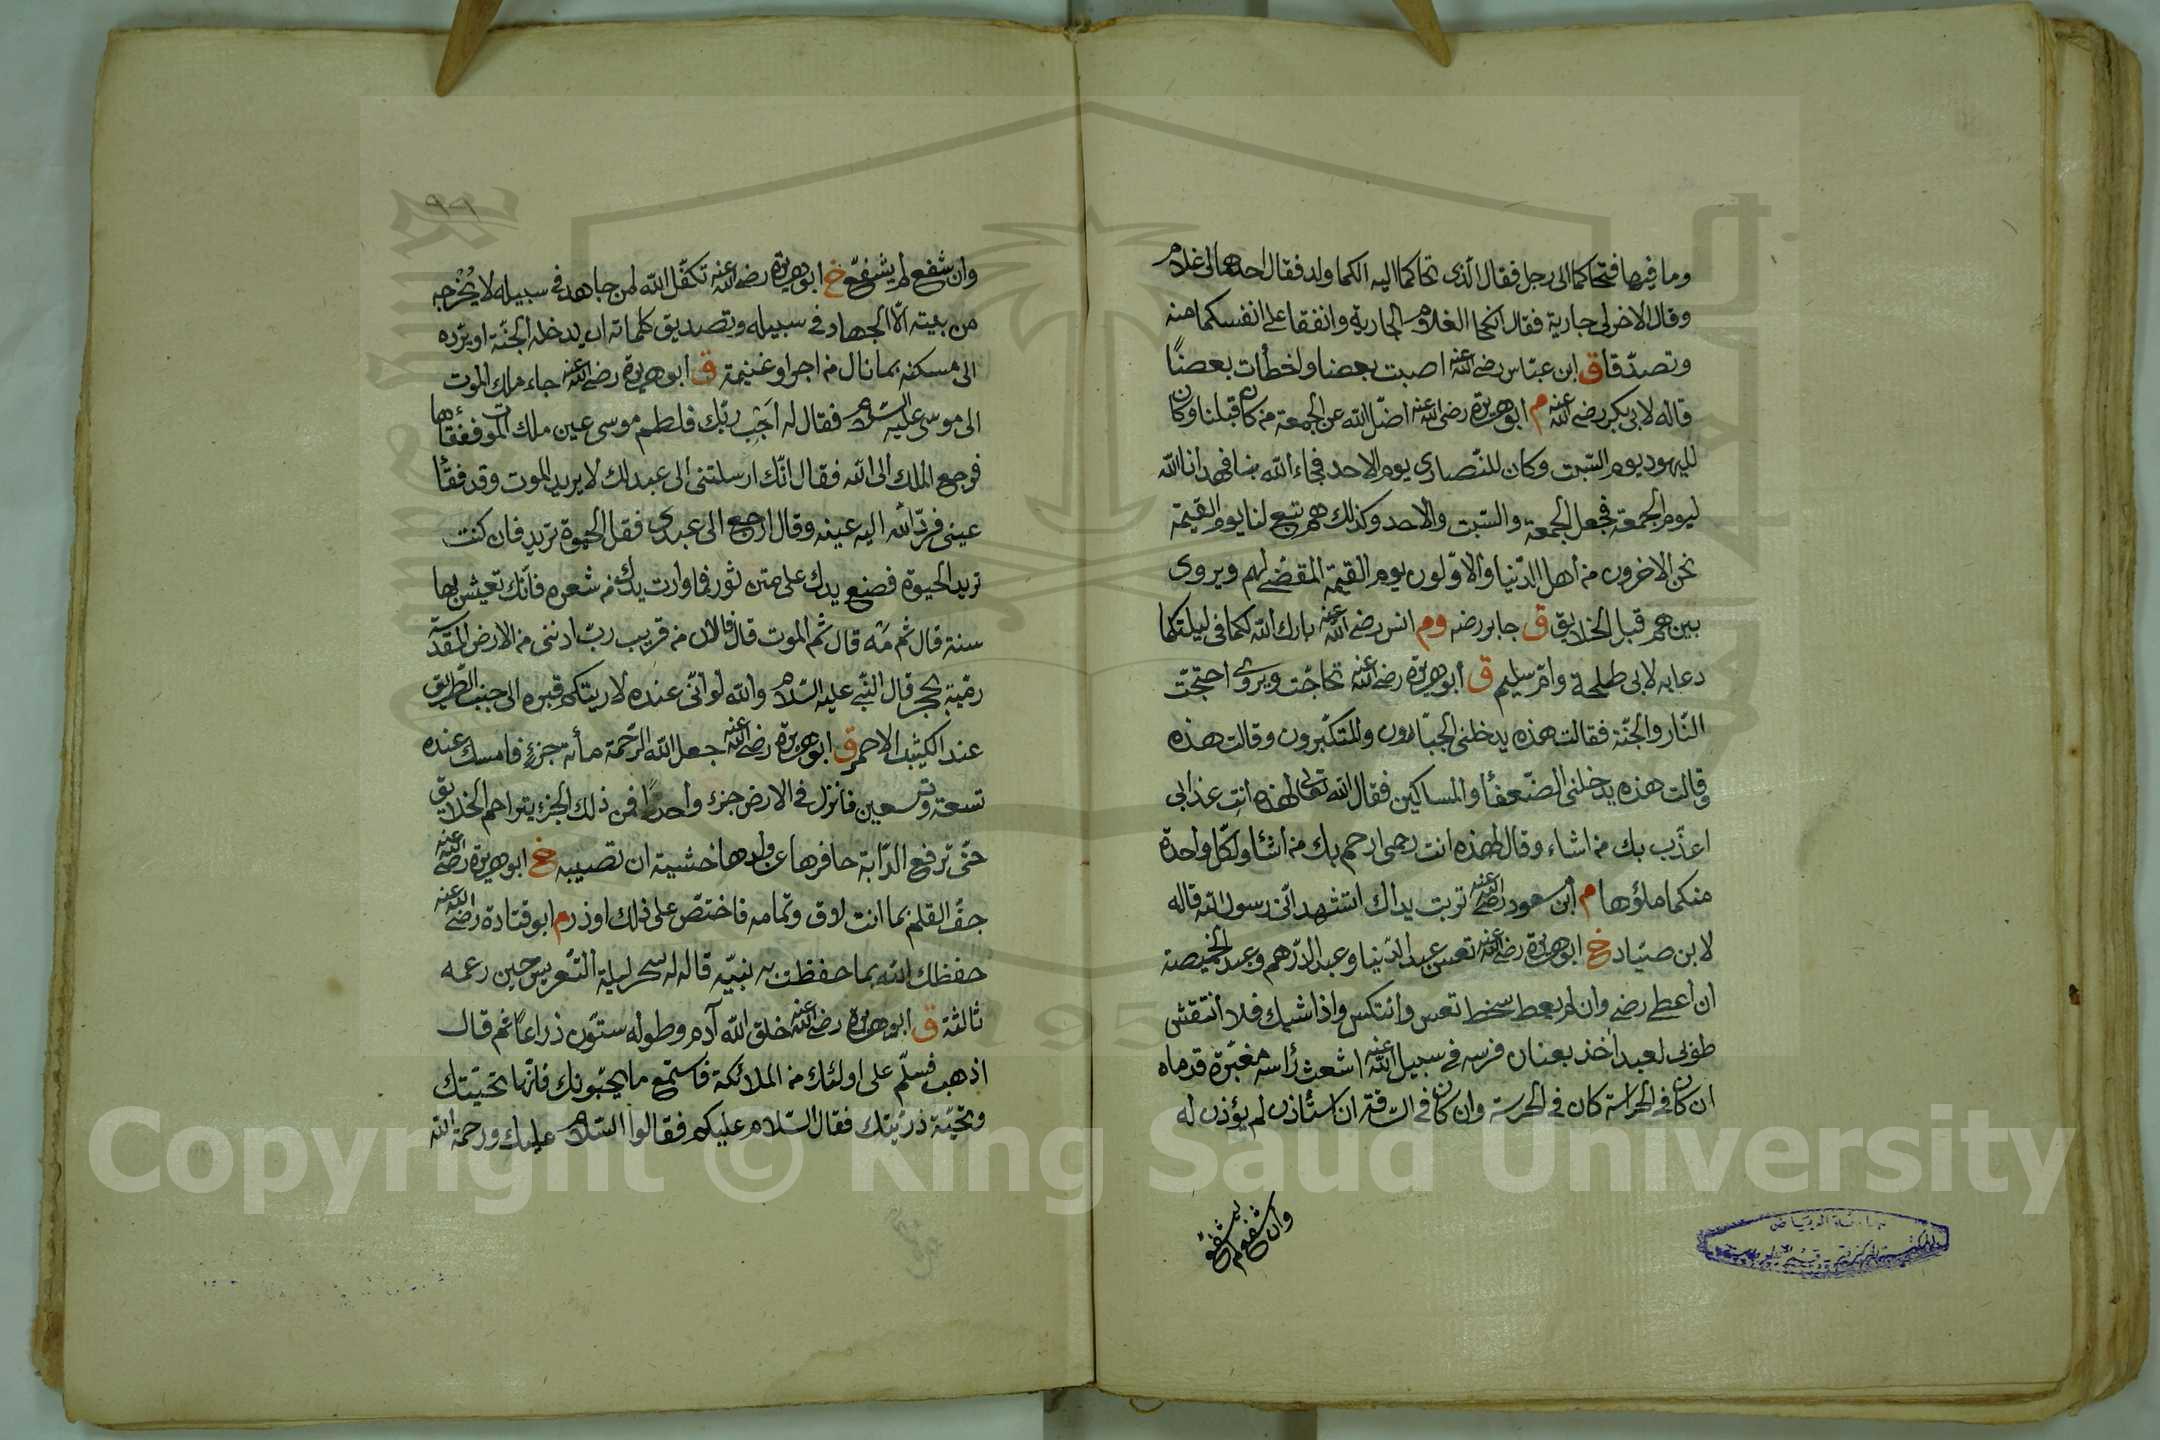 وما فيها فتحاكما الى رجل فقال الذى تحاكما اليه الكما ولد فقال احدهما لى غلام
وقال الاخر لى جارية فقال انكحا الغلام الجارية وانفقا على انفسكما منه
وتصدّقا ق ابن عبّاس رضى الله عنه اصبت بعضا واخطأت بعضًا
قاله لابى بكر رضى الله عنه م ابو هريرة رضى الله عنه اضلّ الله عن الجمعة من كان قبلنا وكان
لليهود يوم السّبت وكان للنّصارى يوم الاحد فجاء الله بنا فهدانا الله
ليوم الجمعة فجعل الجمعة والسّبت والاحد وكذلك هم تبع لنا يوم القيمة
نحن الاخرون من اهل الدّنيا والاوّلون يوم القيمة المقضى لهم ويروى
بينهم قبل الخلايق ق جابر رضه وم انس رضى الله عنه بارك الله لكما فى ليلتكما
دعا به لابى طلحة وامّ سليم ق أبو هريرة رضى الله عنه تحاجّت ويروى احتجّت
النّار والجنّة فقالت هذه يدخلنى الجبّارون والمتكبّرون وقالت هذه
وقالت هذه يدخلنى الضّعفأ والمساكين فقال الله تعالى لهذه انت عذابى
اعذّب بك من اشاء وقال لهذه انت رحمتى ارحم بك من اشأ ولكلّ واحدة
منكما ملؤها م ابن سعود رضى الله عنه تربت يداك اتشهد انّى رسول الله قاله
لابن صيّاد خ ابو هريرة رضى الله عنه تعس عبد الدّنيا وعبد الدّرهم وعبد الخميصة
ان اعطى رضى وان لم يعط سخط تعس وانتكس واذا شيك فلا انتقش
طوبى لعبد اخذ بعنان فرسه فى سبيل الله عنه اشعث رأسه مغبّرة قدماه
ان كان فى الحراسة كان فى الحرسة وان كان فى السّاقة ان استأذن لم يؤذن له
وان شفع لم يشفّع
وان شفع لم يشفّع خ ابو هريرة رضى الله عنه تكفّل الله لمن جاهد فى سبيله لا يُخْرجه
من بيته الّا الجهاد فى سبيله وتصديق كلماته ان يدخله الجنّة او يردّه
الى مسكنه بما نال من اجر او غنيمة ق ابو هريرة رضى الله عنه جاء ملك الموت
الى موسى عليه السّلام فقال له اَجِب ربّك فلطم موسى عين ملك الموت ففقأها
فرجع الملك الى الله فقال انّك ارسلتنى الى عبد لك لا يريد الموت وقد فقأ
عينى فردّ الله اليه عينه وقال ارجع الى عبدى فقل الحيوة تريد فان كنت
تريد الحيوة فضع يدك على متن ثور فما وارت يدك من شعره فانّك تعيش بها
سنة قال ثم مَه قال ثم الموت قال فالان من قريب ربّ ادننى من الارض المقدّسة
رمْية بحجر قال النّبى عليه السّلام والله لو انّى عنده لاريتكم قبره الى جنب الطّريق
عند الكثيب الاحمر ق ابو هريرة رضى الله عنه جعل الله الرّحمة مأة جزءٍ فامسك عنده
تسعة وتسعين فانزل فى الارض جزء واحدًا فمن ذلك الجزء يتراحم الخلايق
حتّى ترفع الدّابة حافرها عن ولدها خشية ان تصيبه خ ابو هريرة رضى الله عنه
جفّ القلم بما انت لاق وتمامه فاختص على ذلك او ذر م ابو قتادة رضى الله عنه
حفظك الله بما حفظت به نبيّه قاله له سحر ليلة التّعريس حين دعمه
ثالثة ق ابو هريرة رضى الله عنه خلق الله آدم وطوله ستّون ذراعًا ثم قال
اذهب فسلّم على اولئك من الملائكة فاستمع ما يحيّونك فانّها تحيّتك
وتحيّة ذريّتك فقال السّلام عليكم فقالوا السّلام عليك ورحمة الله
Copyright © King Saud University